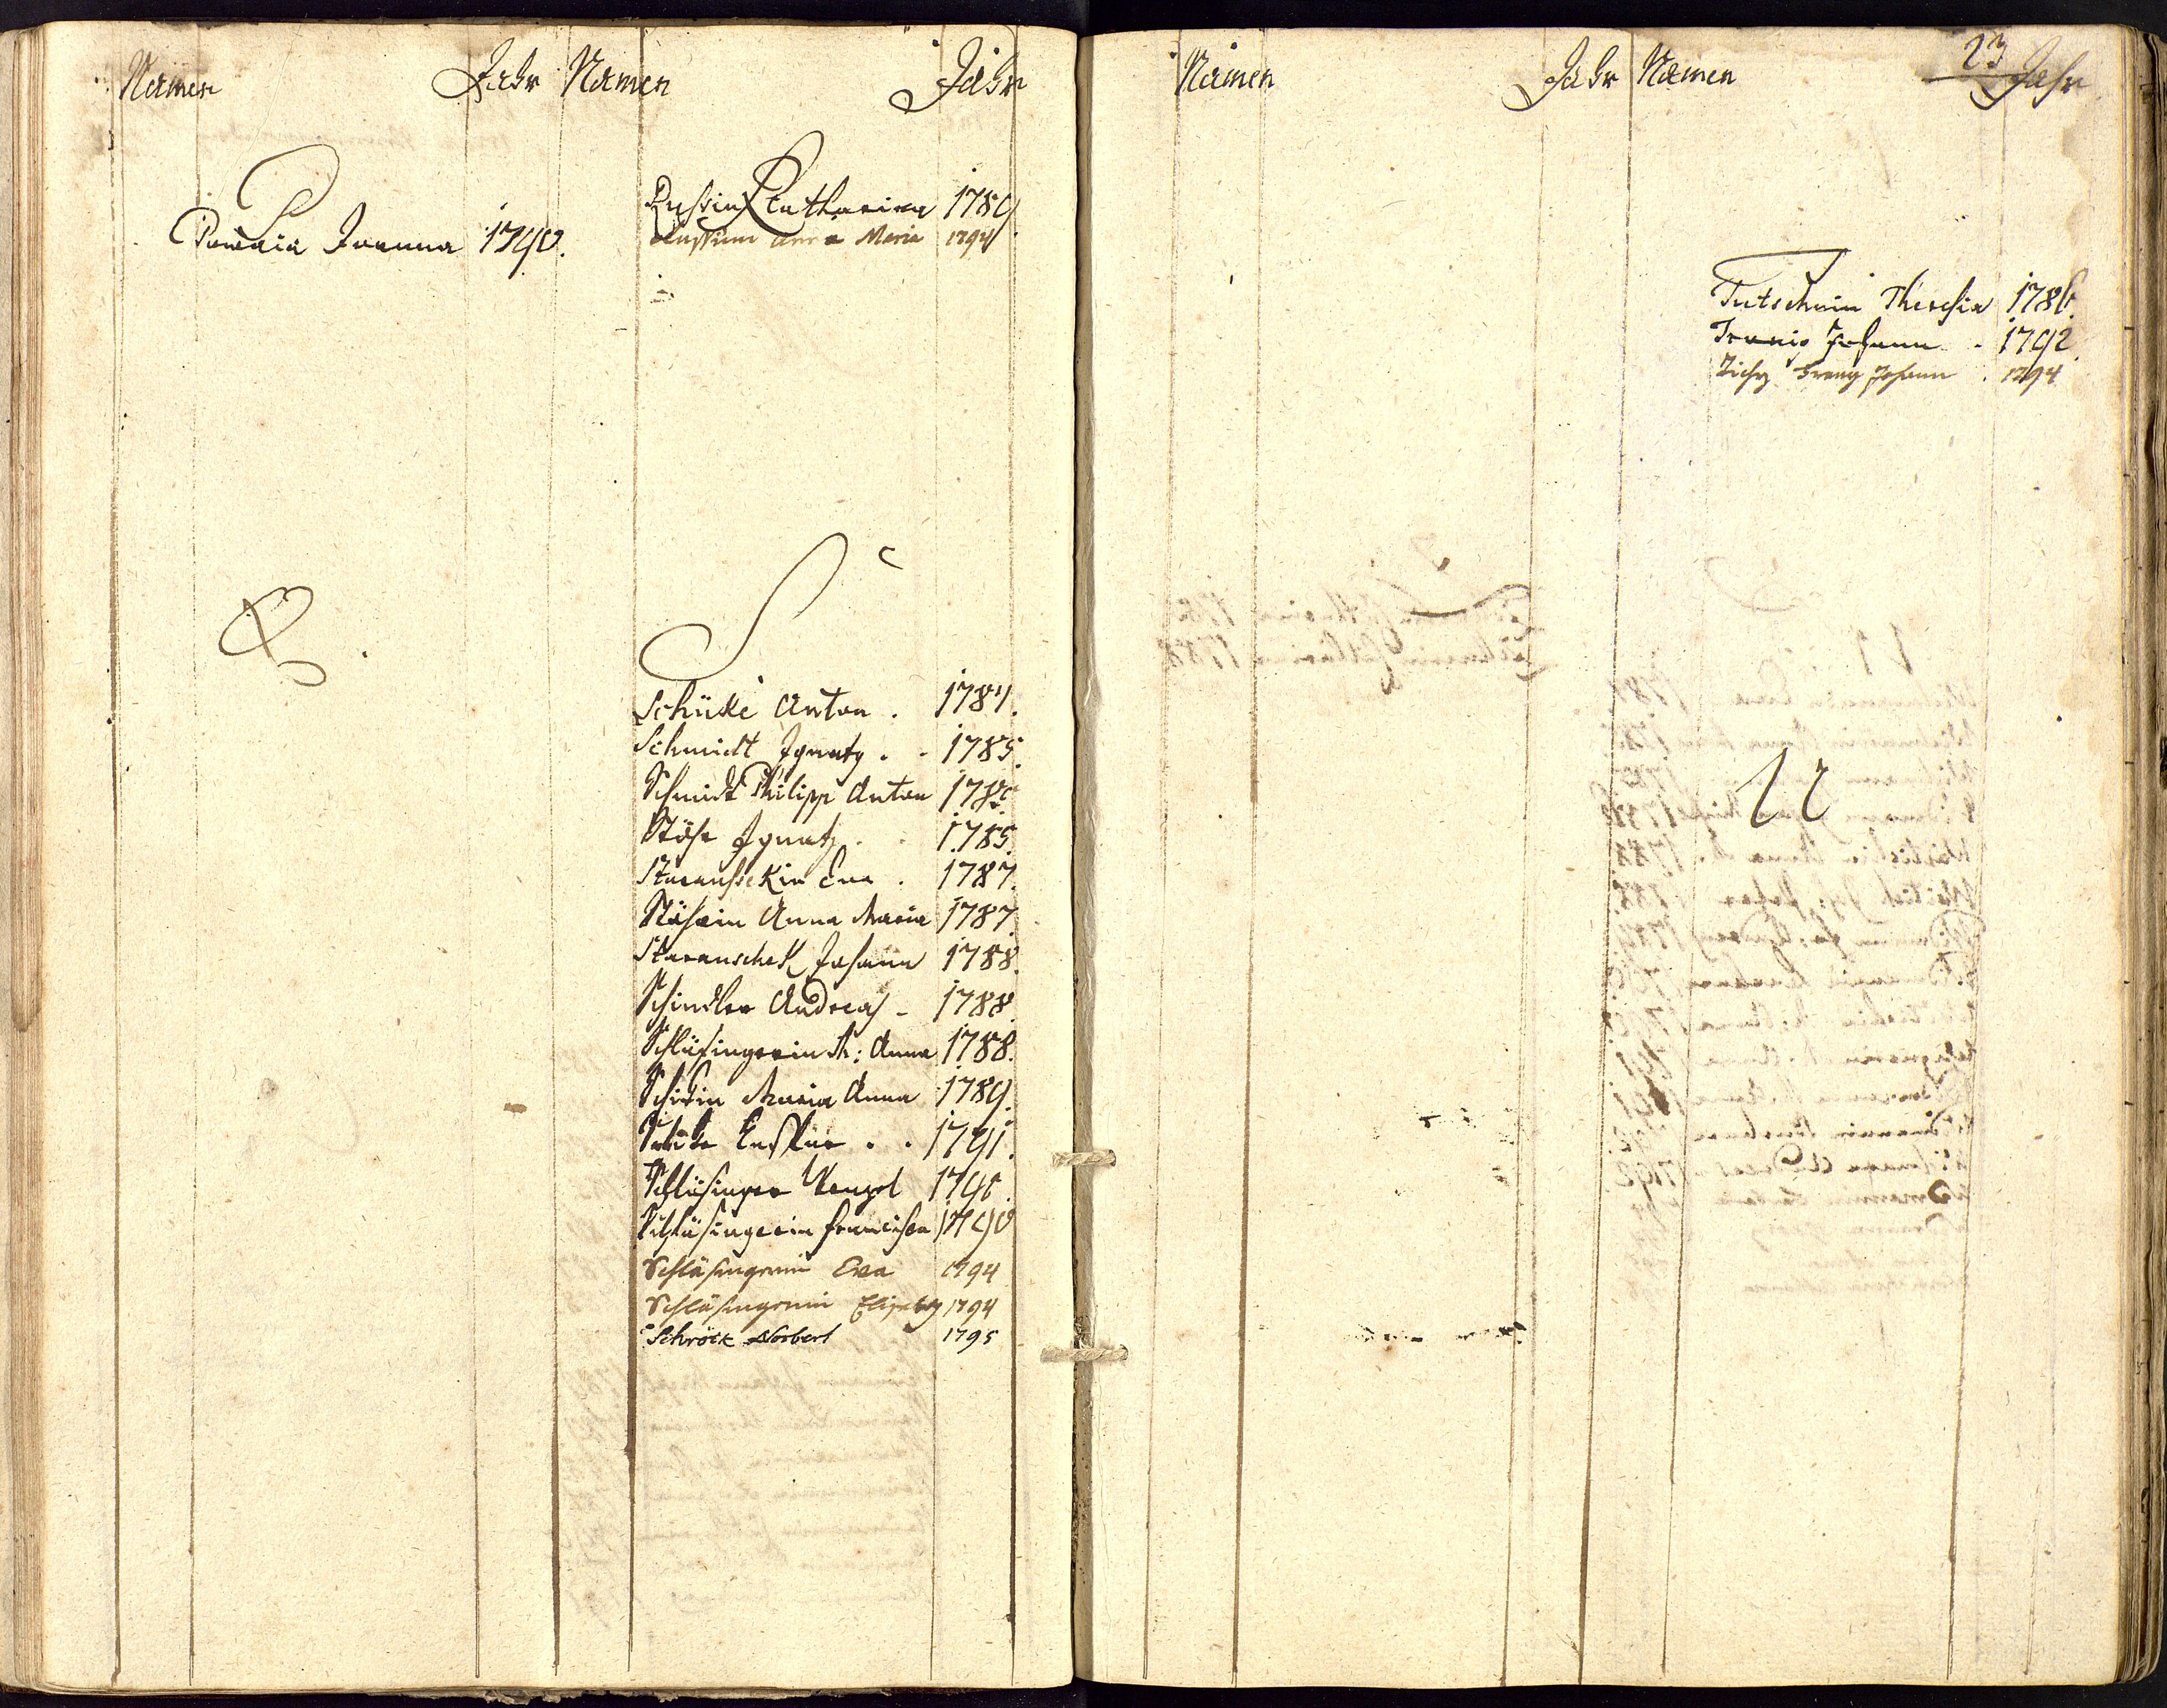 Namen Jahr Namen Jahr
P
Joanna 1790.
R
Catharina 1789
Anna Maria 1794
Q.
S
Schüke Anton . 1787.
Schmidt Ignatz . . 1785.
Schmidt Philipp Anton 1785
Stöhr Ignatz . . 1785.
Eva . 1787.
Stöhrin Anna Maria 1787.
Starauschek Johann 1788.
Schindler Andreas - 1788.
Schläsingerin M: Anna 1788.
Maria Anna 1789.
. . 1791.
Schläsinger Wenzel
Schläsingerin Francisca 1790
Schläsingerin Eva 1794
Schläsingerin Elisabeth 1794
Schröck Norbert 1795
Namen Jahr Namen Jahr
23
T
Tutschnin Theresia 1786.
Johann - 1792.
Tichy Franz Johann . 1794
U